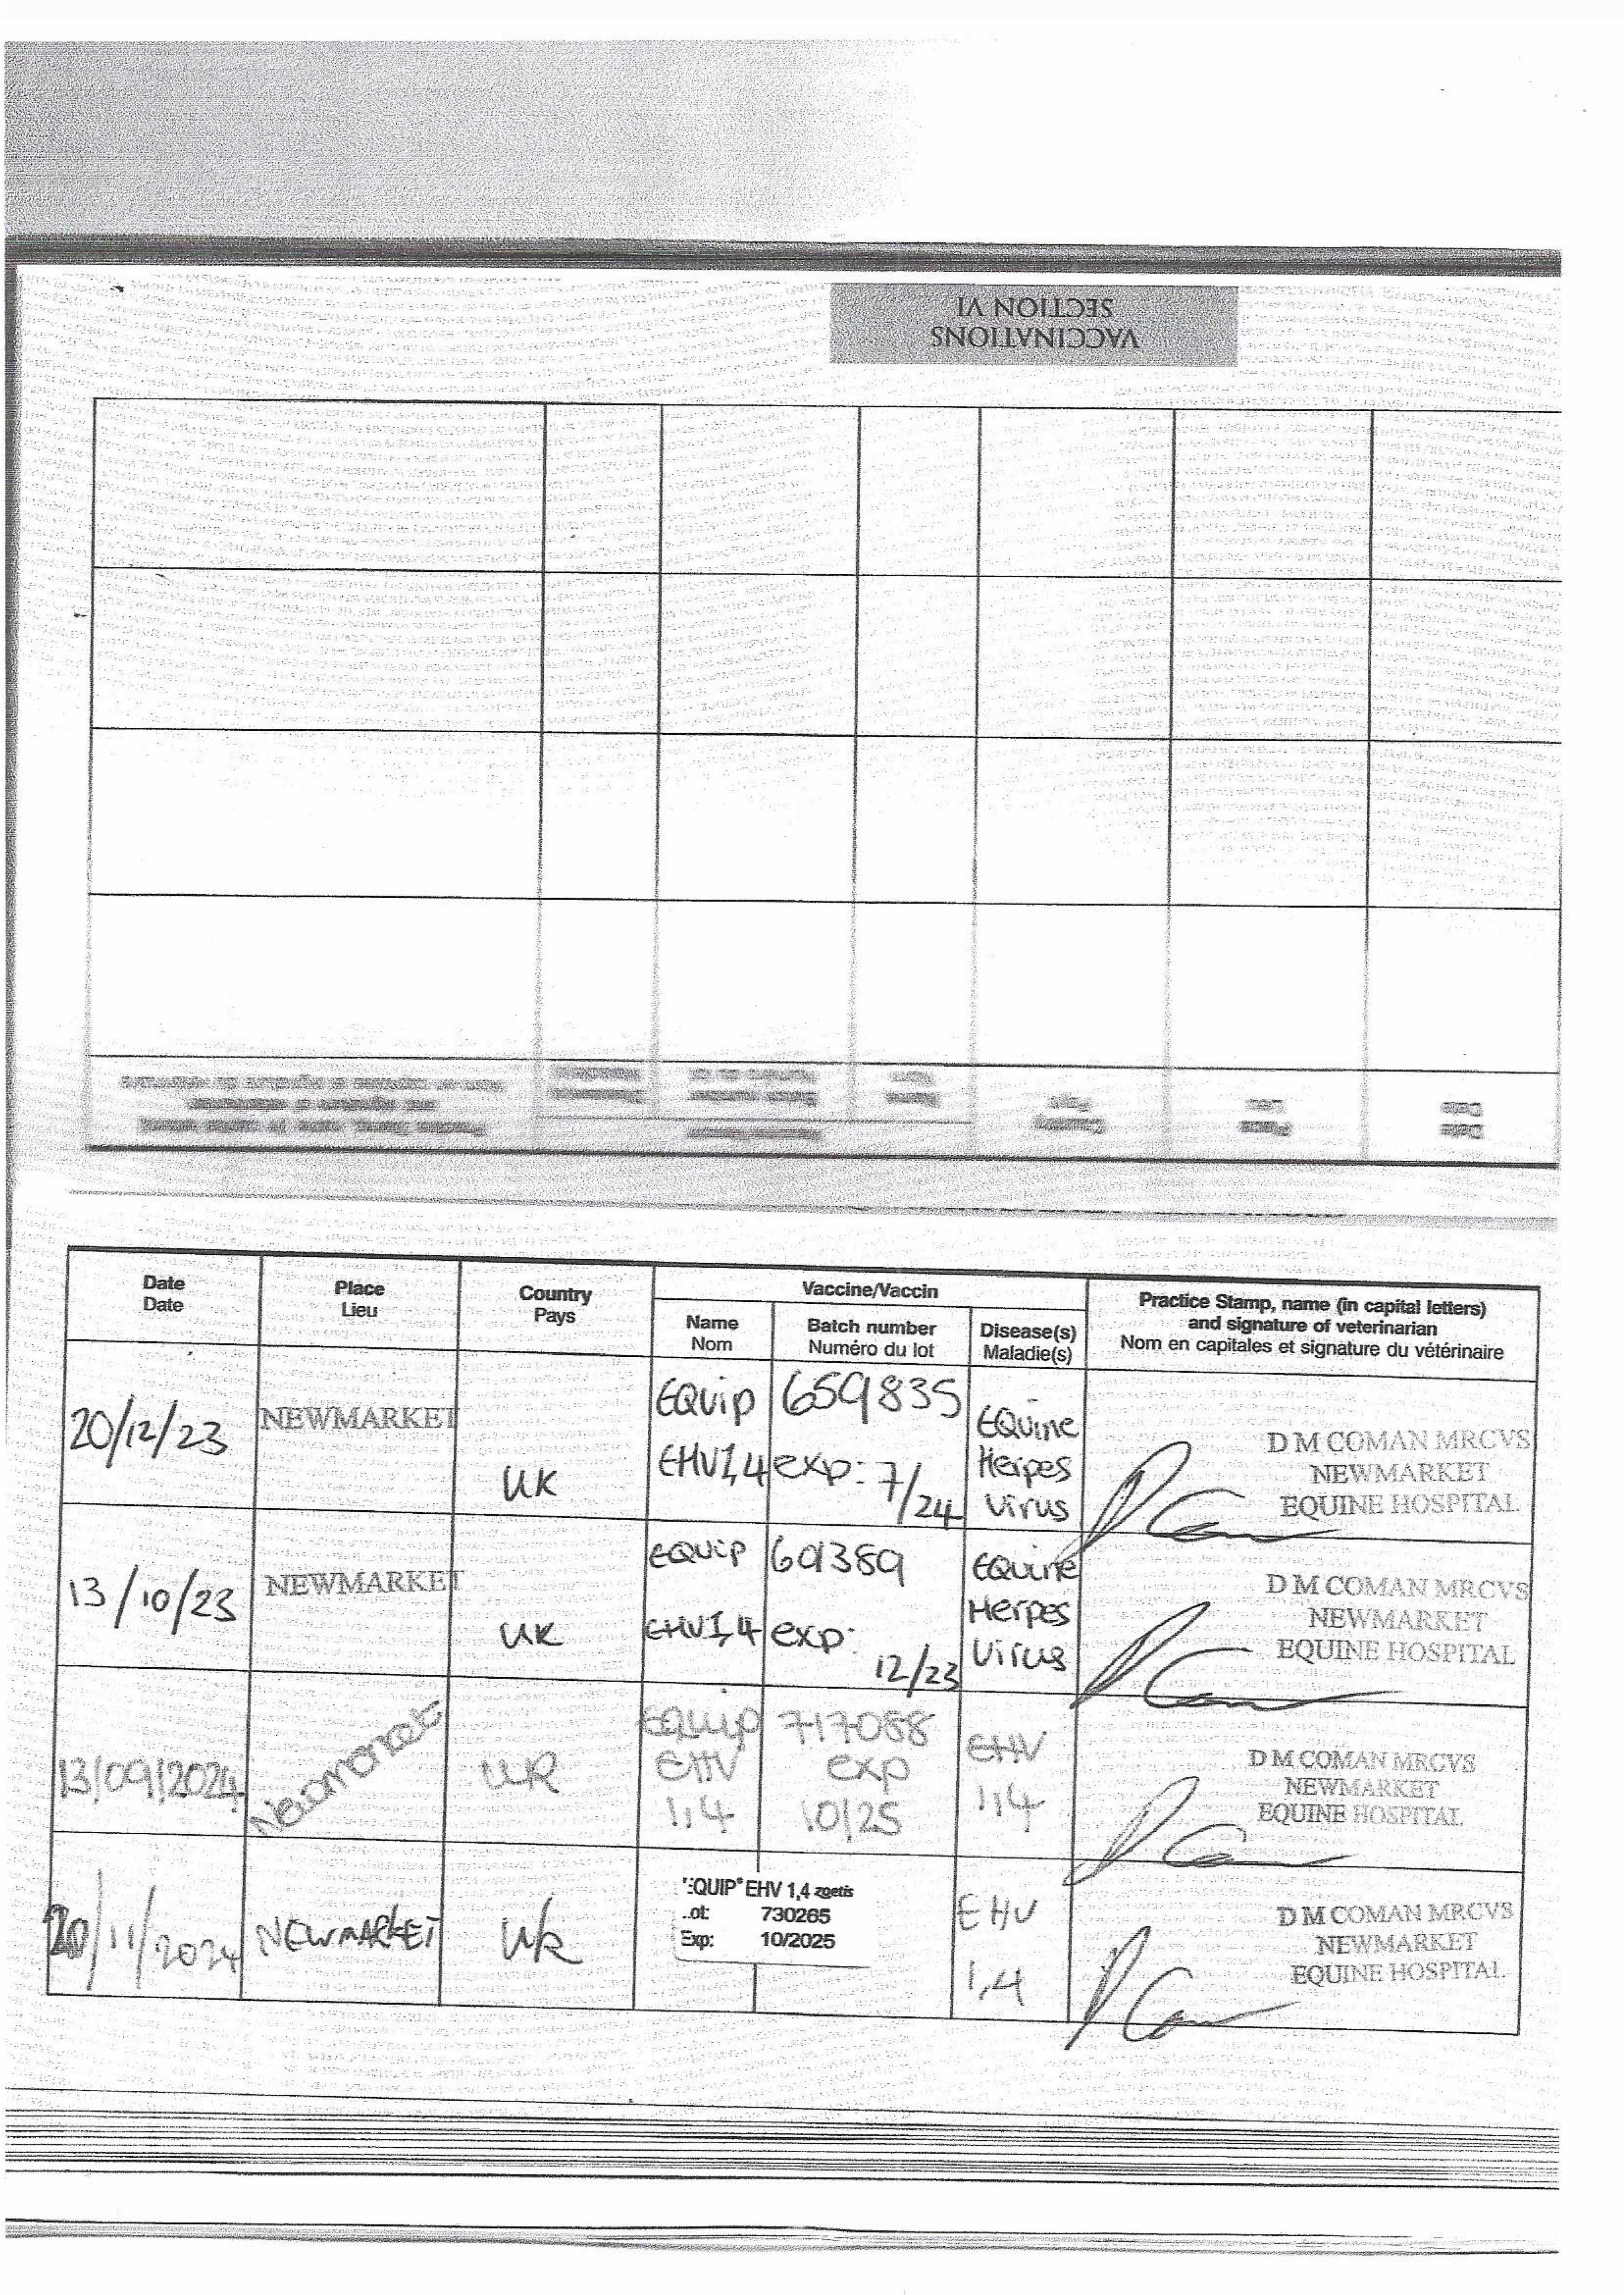 VACCINATIONS
SECTION VI
Date
Date
Place
Lieu
Country
Pays
Vaccine/Vaccin
Name
Nom
Batch number
Numéro du lot
Disease(s)
Maladie(s)
Practice Stamp, name (in capital letters)
and signature of veterinarian
Nom en capitales et signature du vétérinaire
20/12/23
NEWMARKET
UK
EQuip
EHV1,4
659835
exp: 7/24
EQuine
Herpes
Virus
D M COMAN MRCVS
NEWMARKET
EQUINE HOSPITAL
13/10/23
NEWMARKET
UK
EQuip
EHV1,4
601389
exp:
12/23
EQuine
Herpes
Virus
D M COMAN MRCVS
NEWMARKET
EQUINE HOSPITAL
13/09/2024
Newmarket
UK
EQuip
EHV
1,4
717088
exp
10/25
EHV
1,4
D M COMAN MRCVS
NEWMARKET
EQUINE HOSPITAL
20/11/2024
NEWMARKET
UK
EQUIP® EHV 1,4 zoetis
ot: 730265
Exp: 10/2025
EHV
1,4
D M COMAN MRCVS
NEWMARKET
EQUINE HOSPITAL